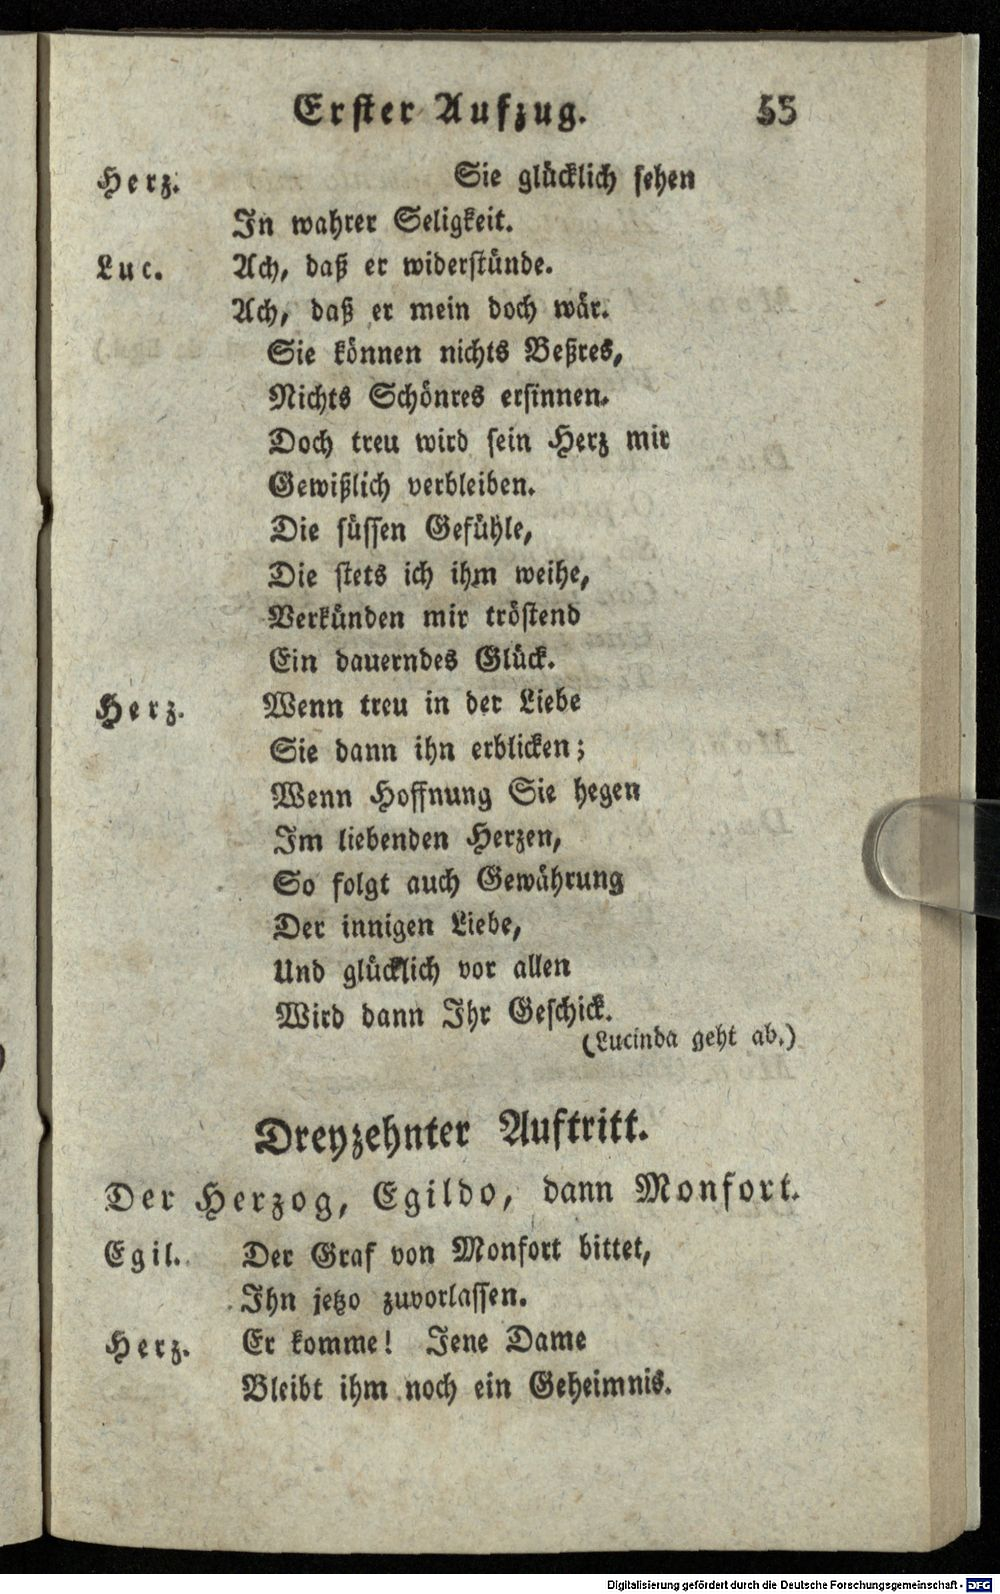 Erster Aufzug. 55
Herz. Sie glücklich sehen
In wahrer Seligkeit.
Luc. Ach, daß er widerstünde.
Ach, daß er mein doch wär.
Sie können nichts Beßres,
Nichts Schönres ersinnen.
Doch treu wird sein Herz mir
Gewißlich verbleiben.
Die süssen Gefühle,
Die stets ich ihm weihe,
Verkünden mir tröstend
Ein dauerndes Glück.
Herz. Wenn treu in der Liebe
Sie dann ihn erblicken;
Wenn Hoffnung Sie hegen
Im liebenden Herzen,
So folgt auch Gewährung
Der innigen Liebe,
Und glücklich vor allen
Wird dann Ihr Geschick.
(Lucinda geht ab.)
Dreyzehnter Auftritt.
Der Herzog, Egildo, dann Monfort.
Egil. Der Graf von Monfort bittet,
Ihn jetzo zuvorlassen.
Herz. Er komme! Jene Dame
Bleibt ihm noch ein Geheimnis.
Digitalisierung gefördert durch die Deutsche Forschungsgemeinschaft - DFG